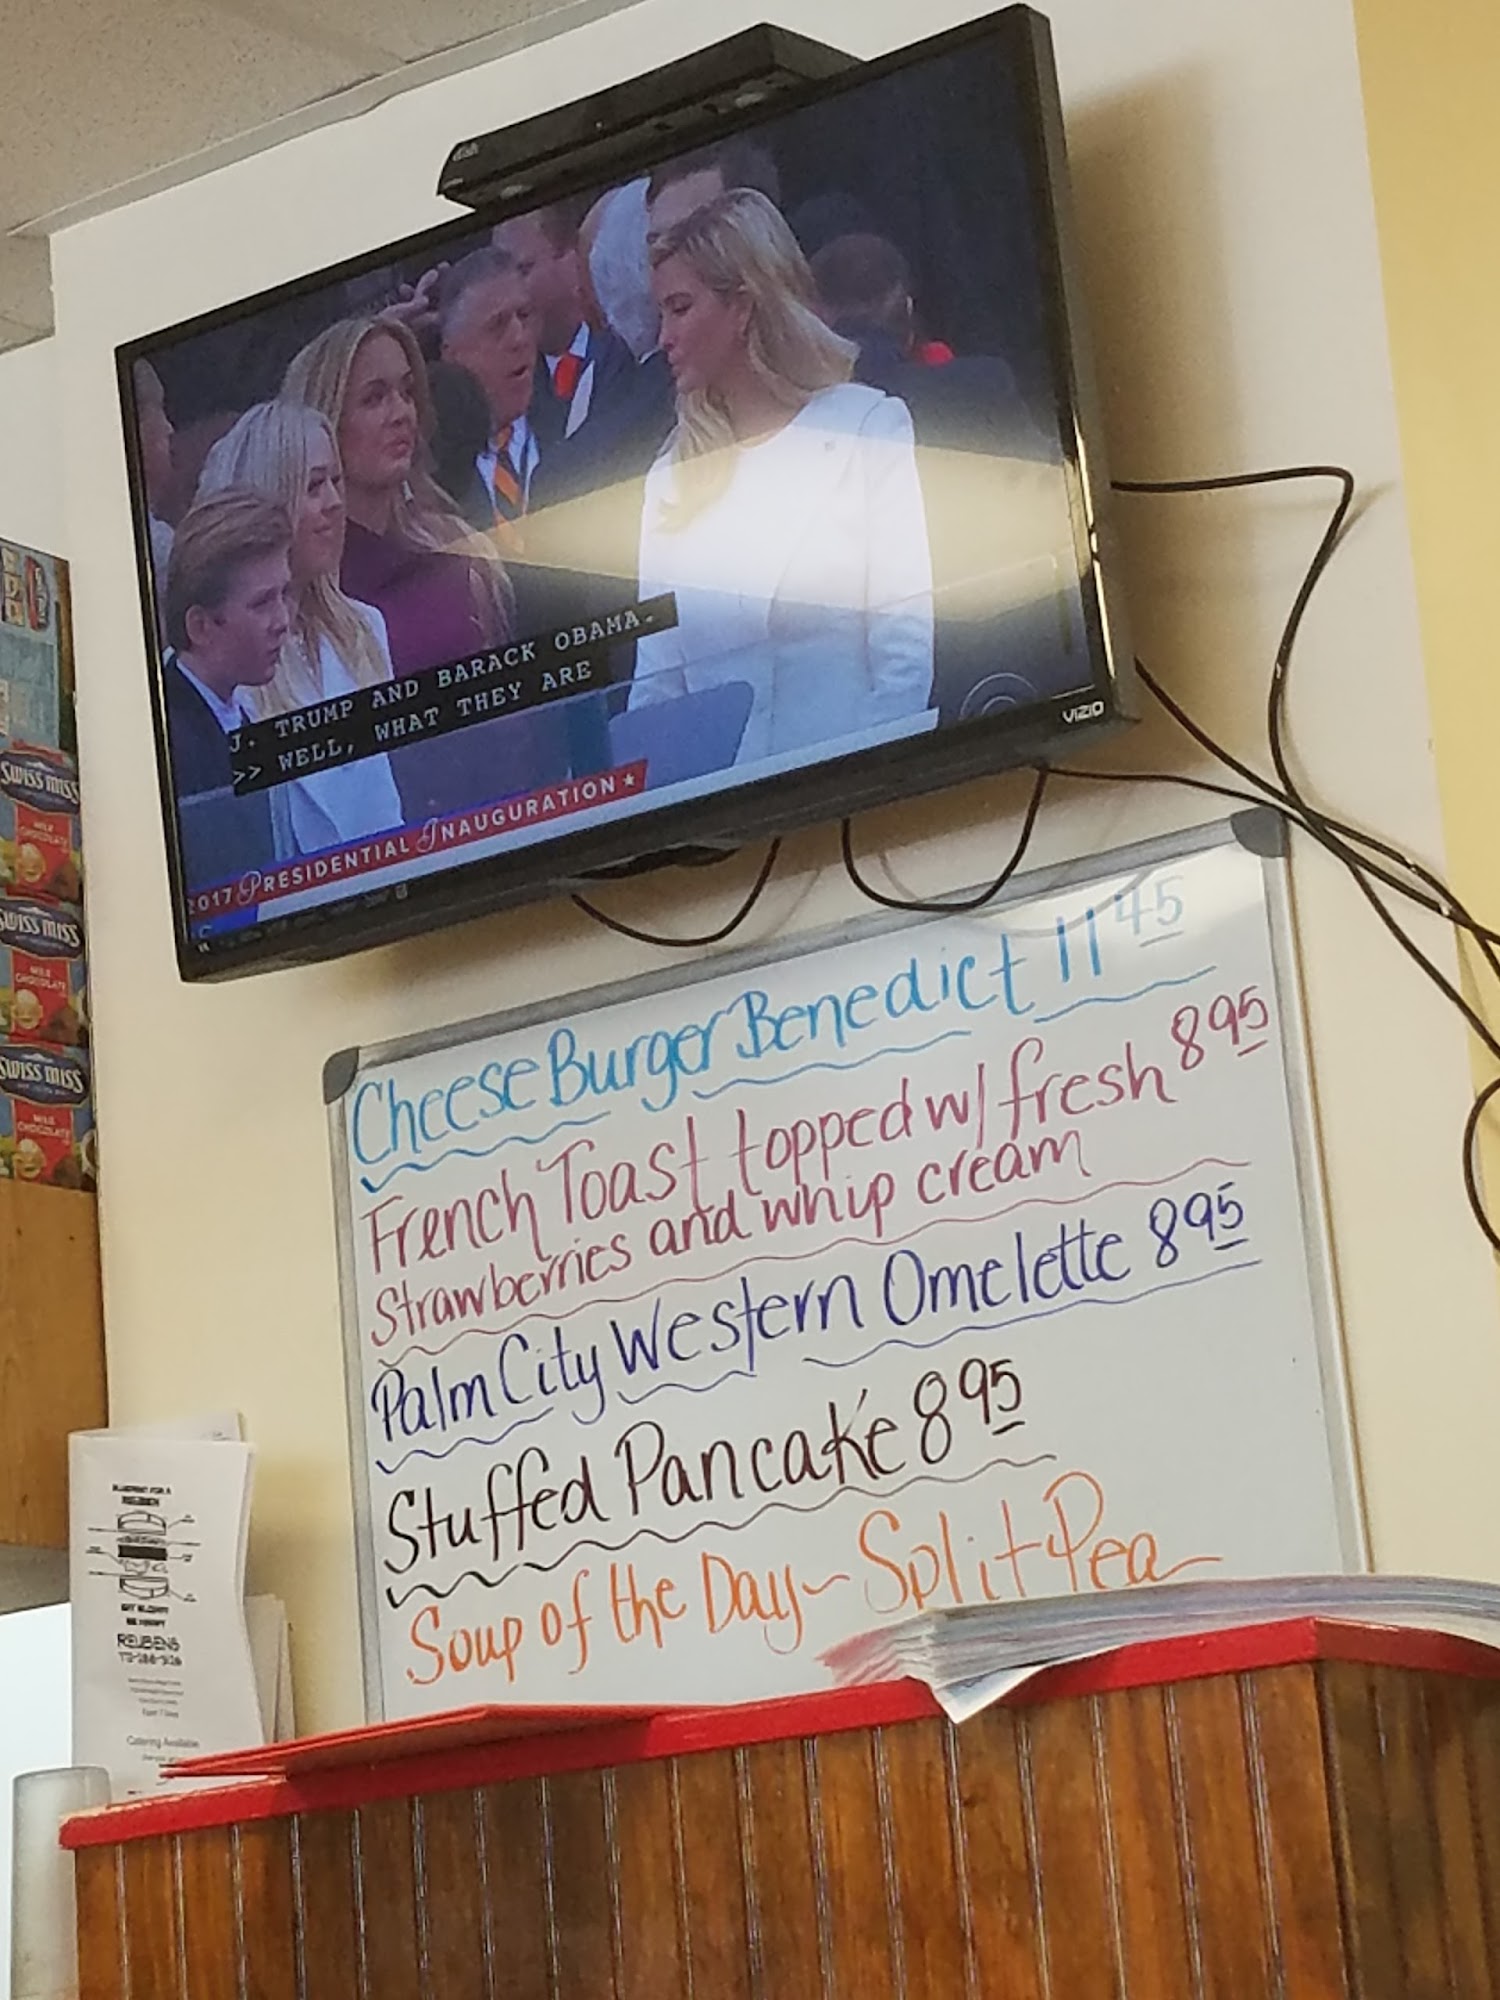 J. TRUMP AND BARACK OBAMA.
>> WELL, WHAT THEY ARE
2017 PRESIDENTIAL INAUGURATION
VIZIO
SWISS MISS
MILK
CHOCOLATE
SWISS MISS
MILK
CHOCOLATE
SWISS MISS
MILK
CHOCOLATE
Cheese Burger Benedict 11 45
French Toast topped w/ fresh 8 95
strawberries and whip cream
Palm City Western Omelette 8 95
Stuffed Pancake 8 95
Soup of the Day~ Split Pea
BLUEPRINT FOR A
REUBEN
REUBENS
Catering Available